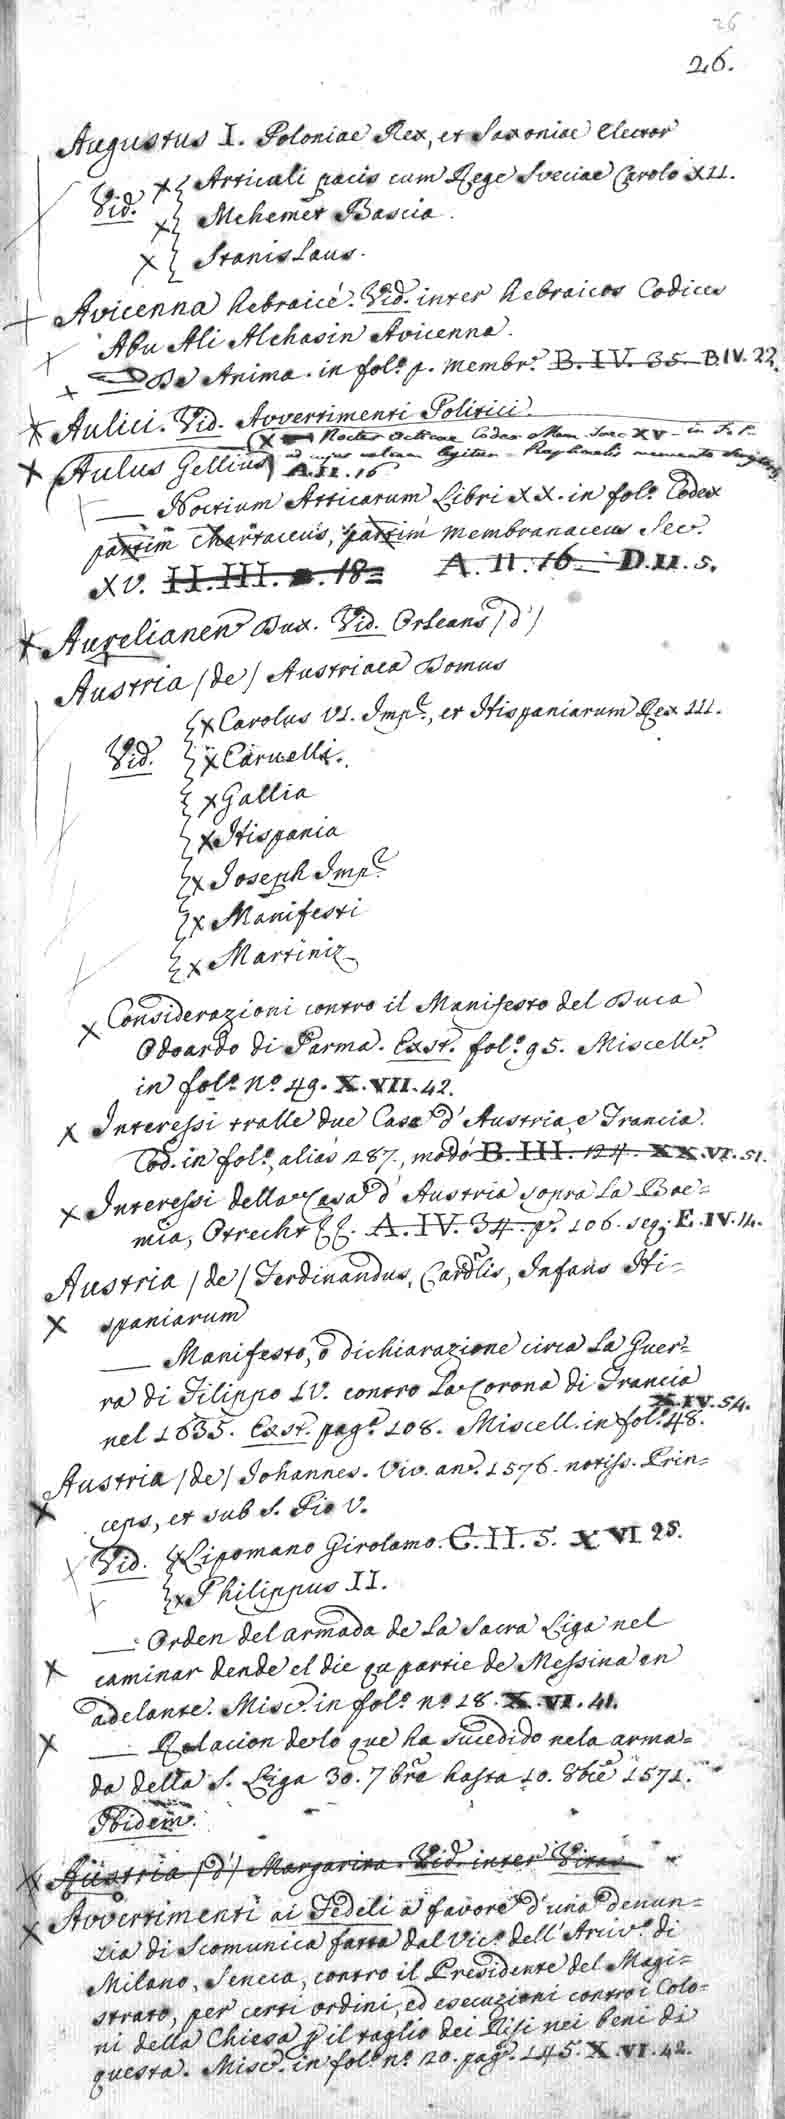 26
26.
Augustus I. Poloniae Rex, et Saxoniae Elector
Vid. Articuli pacis cum Rege Sveciae Carolo XII.
Mehemet Bascia.
Stanislaus.
Avicenna hebraicé. Vid. inter hebraicos Codices
Abu Ali Alchasin Avicenna.
De Anima. in fol.º p. membr.º B. IV. 35. B. IV. 22.
Aulici. Vid. Avvertimenti Politici.
Noctes Atticae Codex Mem. Saec. XV. in F. P.
Aulus Gellius ad cujus calcem legitur. Raphaelis
A. II. 16
— Noctium Atticarum Libri XX. in fol.º Codex
partim Chartaceus, partim membranaceus Sec.
XV. II. III. 18 A. II. 16. D. II. 5.
Aurelianen Dux. Vid. Orleans (d')
Austria (de) Austriaca Domus
Vid. Carolus VI. Imp.r, et Hispaniarum Rex III.
Caruelli.
Gallia
Hispania
Joseph Imp.r
Manifesti
Martiniz
Considerazioni contro il Manifesto del Duca
Odoardo di Parma. Exst. fol.º 95. Miscell.
in fol.º n.º 49. X. VII. 42.
Interessi tralle due Case d'Austria, e Francia.
Cod. in fol.º, aliás 287., modó B. III. 124. XX. VI. 51.
Interessi della Casa d'Austria sopra la Boe=
mia, Otrecht A. IV. 34. p.º 106. seq. E. IV. 14.
Austria (de) Ferdinandus, Cardlis, Infans Hi=
spaniarum
— Manifesto, o dichiarazione circa la Guer=
ra di Filippo IV. contro la Corona di Francia
X. IV. 54.
nel 1635. Exst. pag.º 108. Miscell. in fol.º 48.
Austria (de) Johannes. Viv. an.º 1576. notiss. Prin=
ceps, et sub S. Pio V.
Vid. Lipomano Girolamo. C. II. 5. X VI 25.
Philippus II.
— Orden del armada de la Sacra Liga nel
caminar dende el die qu partie de Messina en
adelante. Misc. in fol.º n.º 18. X. VI. 41.
— Relacion de lo que ha sucedido nela arma=
da della S. Liga 30. 7bre hasta 10. 8bre 1571.
Ibidem.
Austria (d') Margarita. Vid. inter Vitas
Avvertimenti ai Fedeli a favore d'una denun=
zia di Scomunica fatta dal Vic.º dell'Arciv.º di
Milano, Seneca, contro il Presidente del Magi=
strato, per certi ordini, ed esecuzioni contro i Colo=
ni della Chiesa p il taglio dei Risi nei beni di
questa. Misc. in fol.º n.º 20. pag.º 145. X. VI. 42.